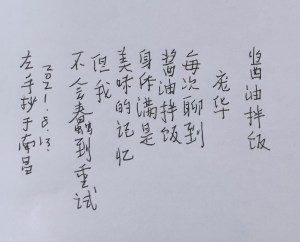 酱油拌饭
庞华
每次聊到
酱油拌饭
身体满是
美味的记忆
但我
不会蠢到重试
2021.8.13.
左手抄于南昌